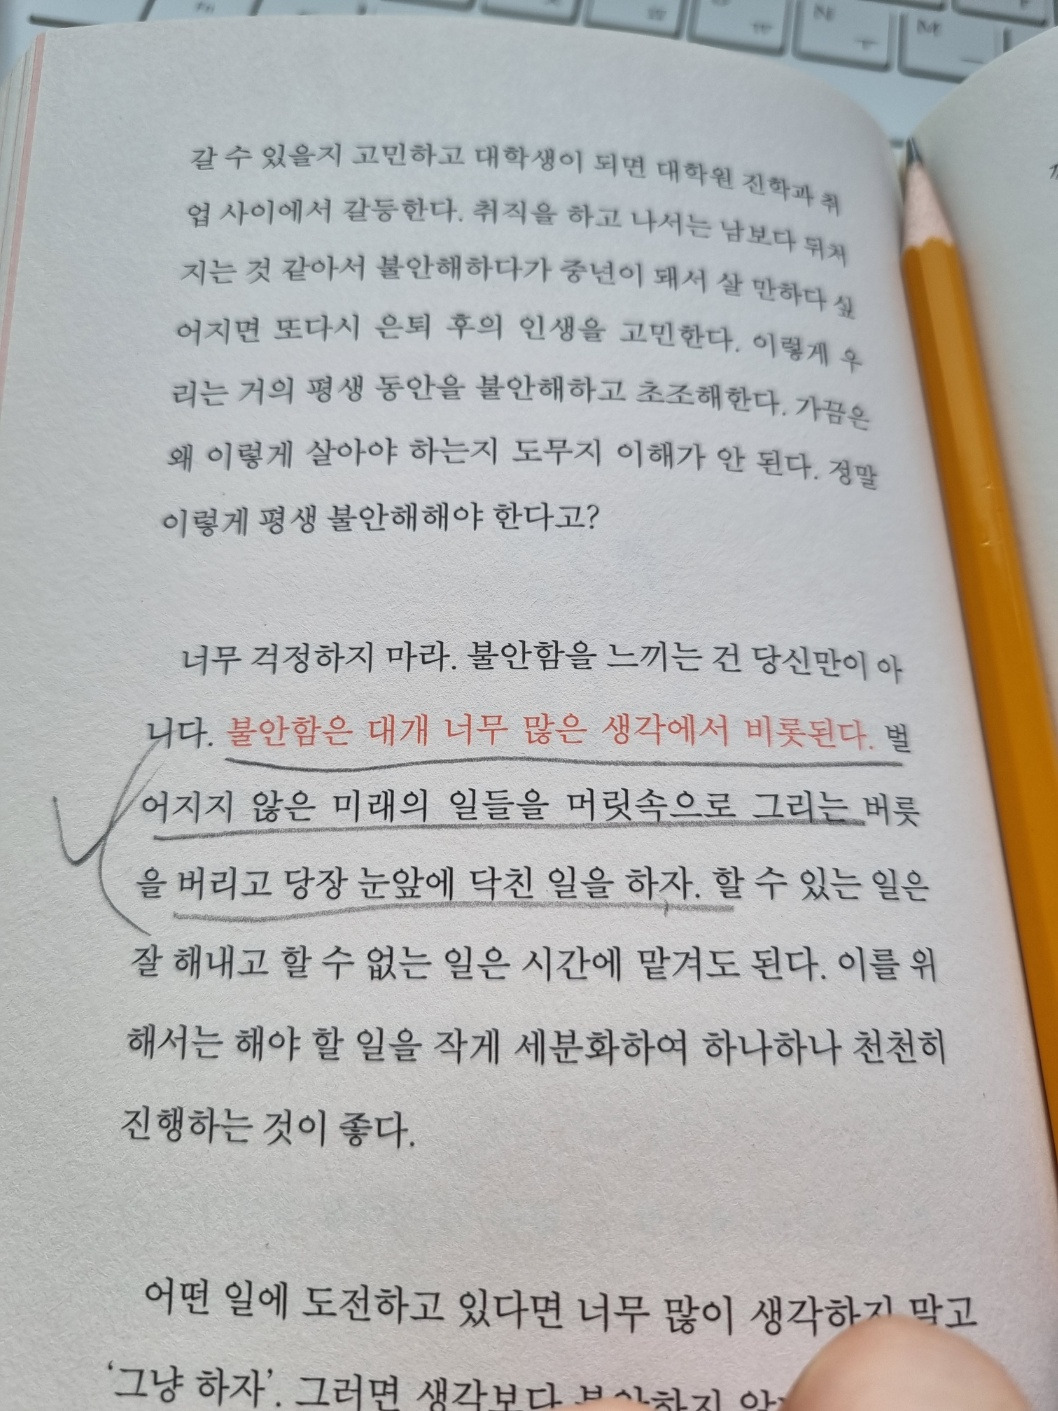 갈 수 있을지 고민하고 대학생이 되면 대학원 진학과 취
업 사이에서 갈등한다. 취직을 하고 나서는 남보다 뒤처
지는 것 같아서 불안해하다가 중년이 돼서 살 만하다 싶
어지면 또다시 은퇴 후의 인생을 고민한다. 이렇게 우
리는 거의 평생 동안을 불안해하고 초조해한다. 가끔은
왜 이렇게 살아야 하는지 도무지 이해가 안 된다. 정말
이렇게 평생 불안해해야 한다고?
너무 걱정하지 마라. 불안함을 느끼는 건 당신만이 아
니다. 불안함은 대개 너무 많은 생각에서 비롯된다. 벌
어지지 않은 미래의 일들을 머릿속으로 그리는 버릇
을 버리고 당장 눈앞에 닥친 일을 하자. 할 수 있는 일은
잘 해내고 할 수 없는 일은 시간에 맡겨도 된다. 이를 위
해서는 해야 할 일을 작게 세분화하여 하나하나 천천히
진행하는 것이 좋다.
어떤 일에 도전하고 있다면 너무 많이 생각하지 말고
‘그냥 하자’. 그러면 생각보다